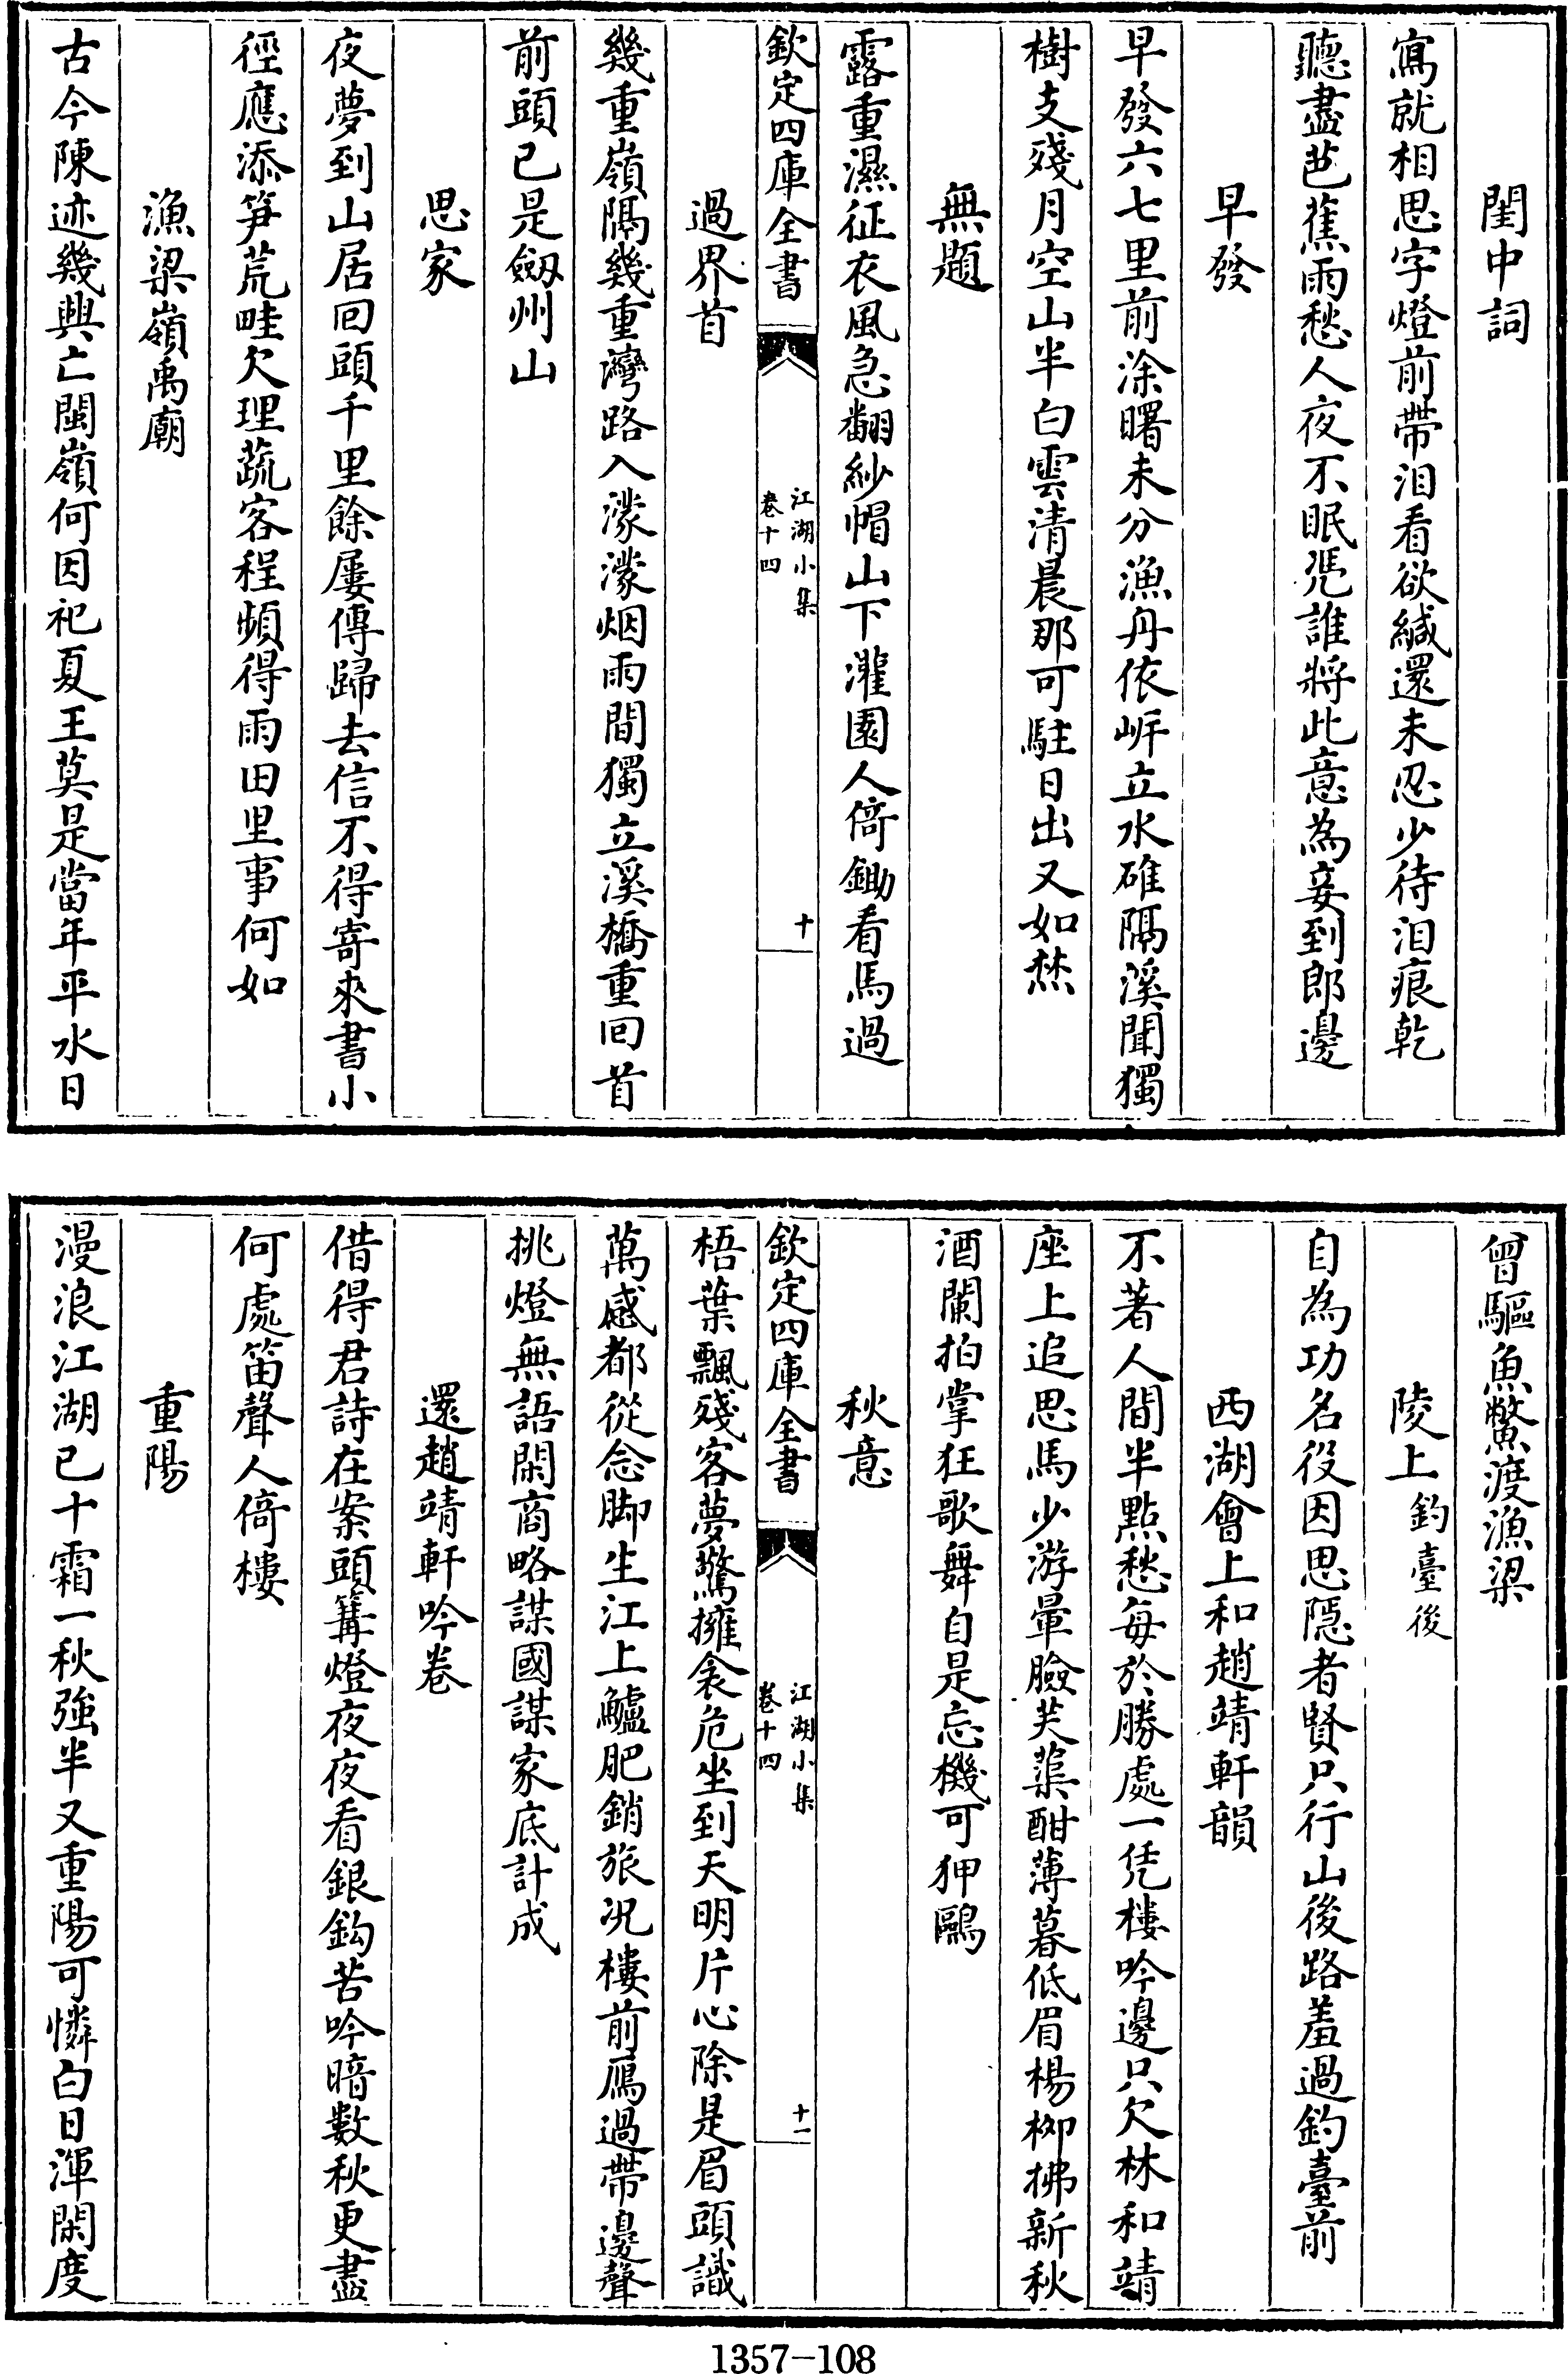 閨中詞
寫就相思字燈前帶淚看欲緘還未忍少待淚痕乾
聽盡芭蕉雨愁人夜不眠凭誰將此意為妾到郎邊
早發
早發六七里前涂曙未分漁舟依岍立水碓隔溪聞獨
樹支殘月空山半白雲清晨那可駐日出又如焚
無題
露重濕征衣風急翻紗帽山下灌園人倚鋤看馬過
欽定四庫全書
江湖小集
卷十四
十
過界首
幾重嶺隔幾重灣路入濛濛烟雨間獨立溪橋重回首
前頭已是劔州山
思家
夜夢到山居回頭千里餘屢傳歸去信不得寄來書小
徑應添筍荒畦欠理蔬客程頻得雨田里事何如
漁梁嶺禹廟
古今陳迹幾興亡閩嶺何因祀夏王莫是當年平水日
曾驅魚鱉渡漁梁
陵上釣臺後
自為功名役因思隱者賢只行山後路羞過釣臺前
西湖會上和趙靖軒韻
不著人間半點愁每於勝處一凭樓吟邊只欠林和靖
座上追思馬少游暈臉芙蕖酣薄暮低眉楊柳拂新秋
酒闌拍掌狂歌舞自是忘機可狎鷗
秋意
欽定四庫全書
江湖小集
卷十四
十一
梧葉飄殘客夢驚擁衾危坐到天明片心除是眉頭識
萬感都從念脚生江上鱸肥銷旅況樓前鴈過帶邊聲
挑燈無語閑商略謀國謀家底計成
還趙靖軒吟卷
借得君詩在案頭篝燈夜夜看銀鈎苦吟暗數秋更盡
何處笛聲人倚樓
重陽
漫浪江湖已十霜一秋強半又重陽可憐白日渾閑度
1357-108